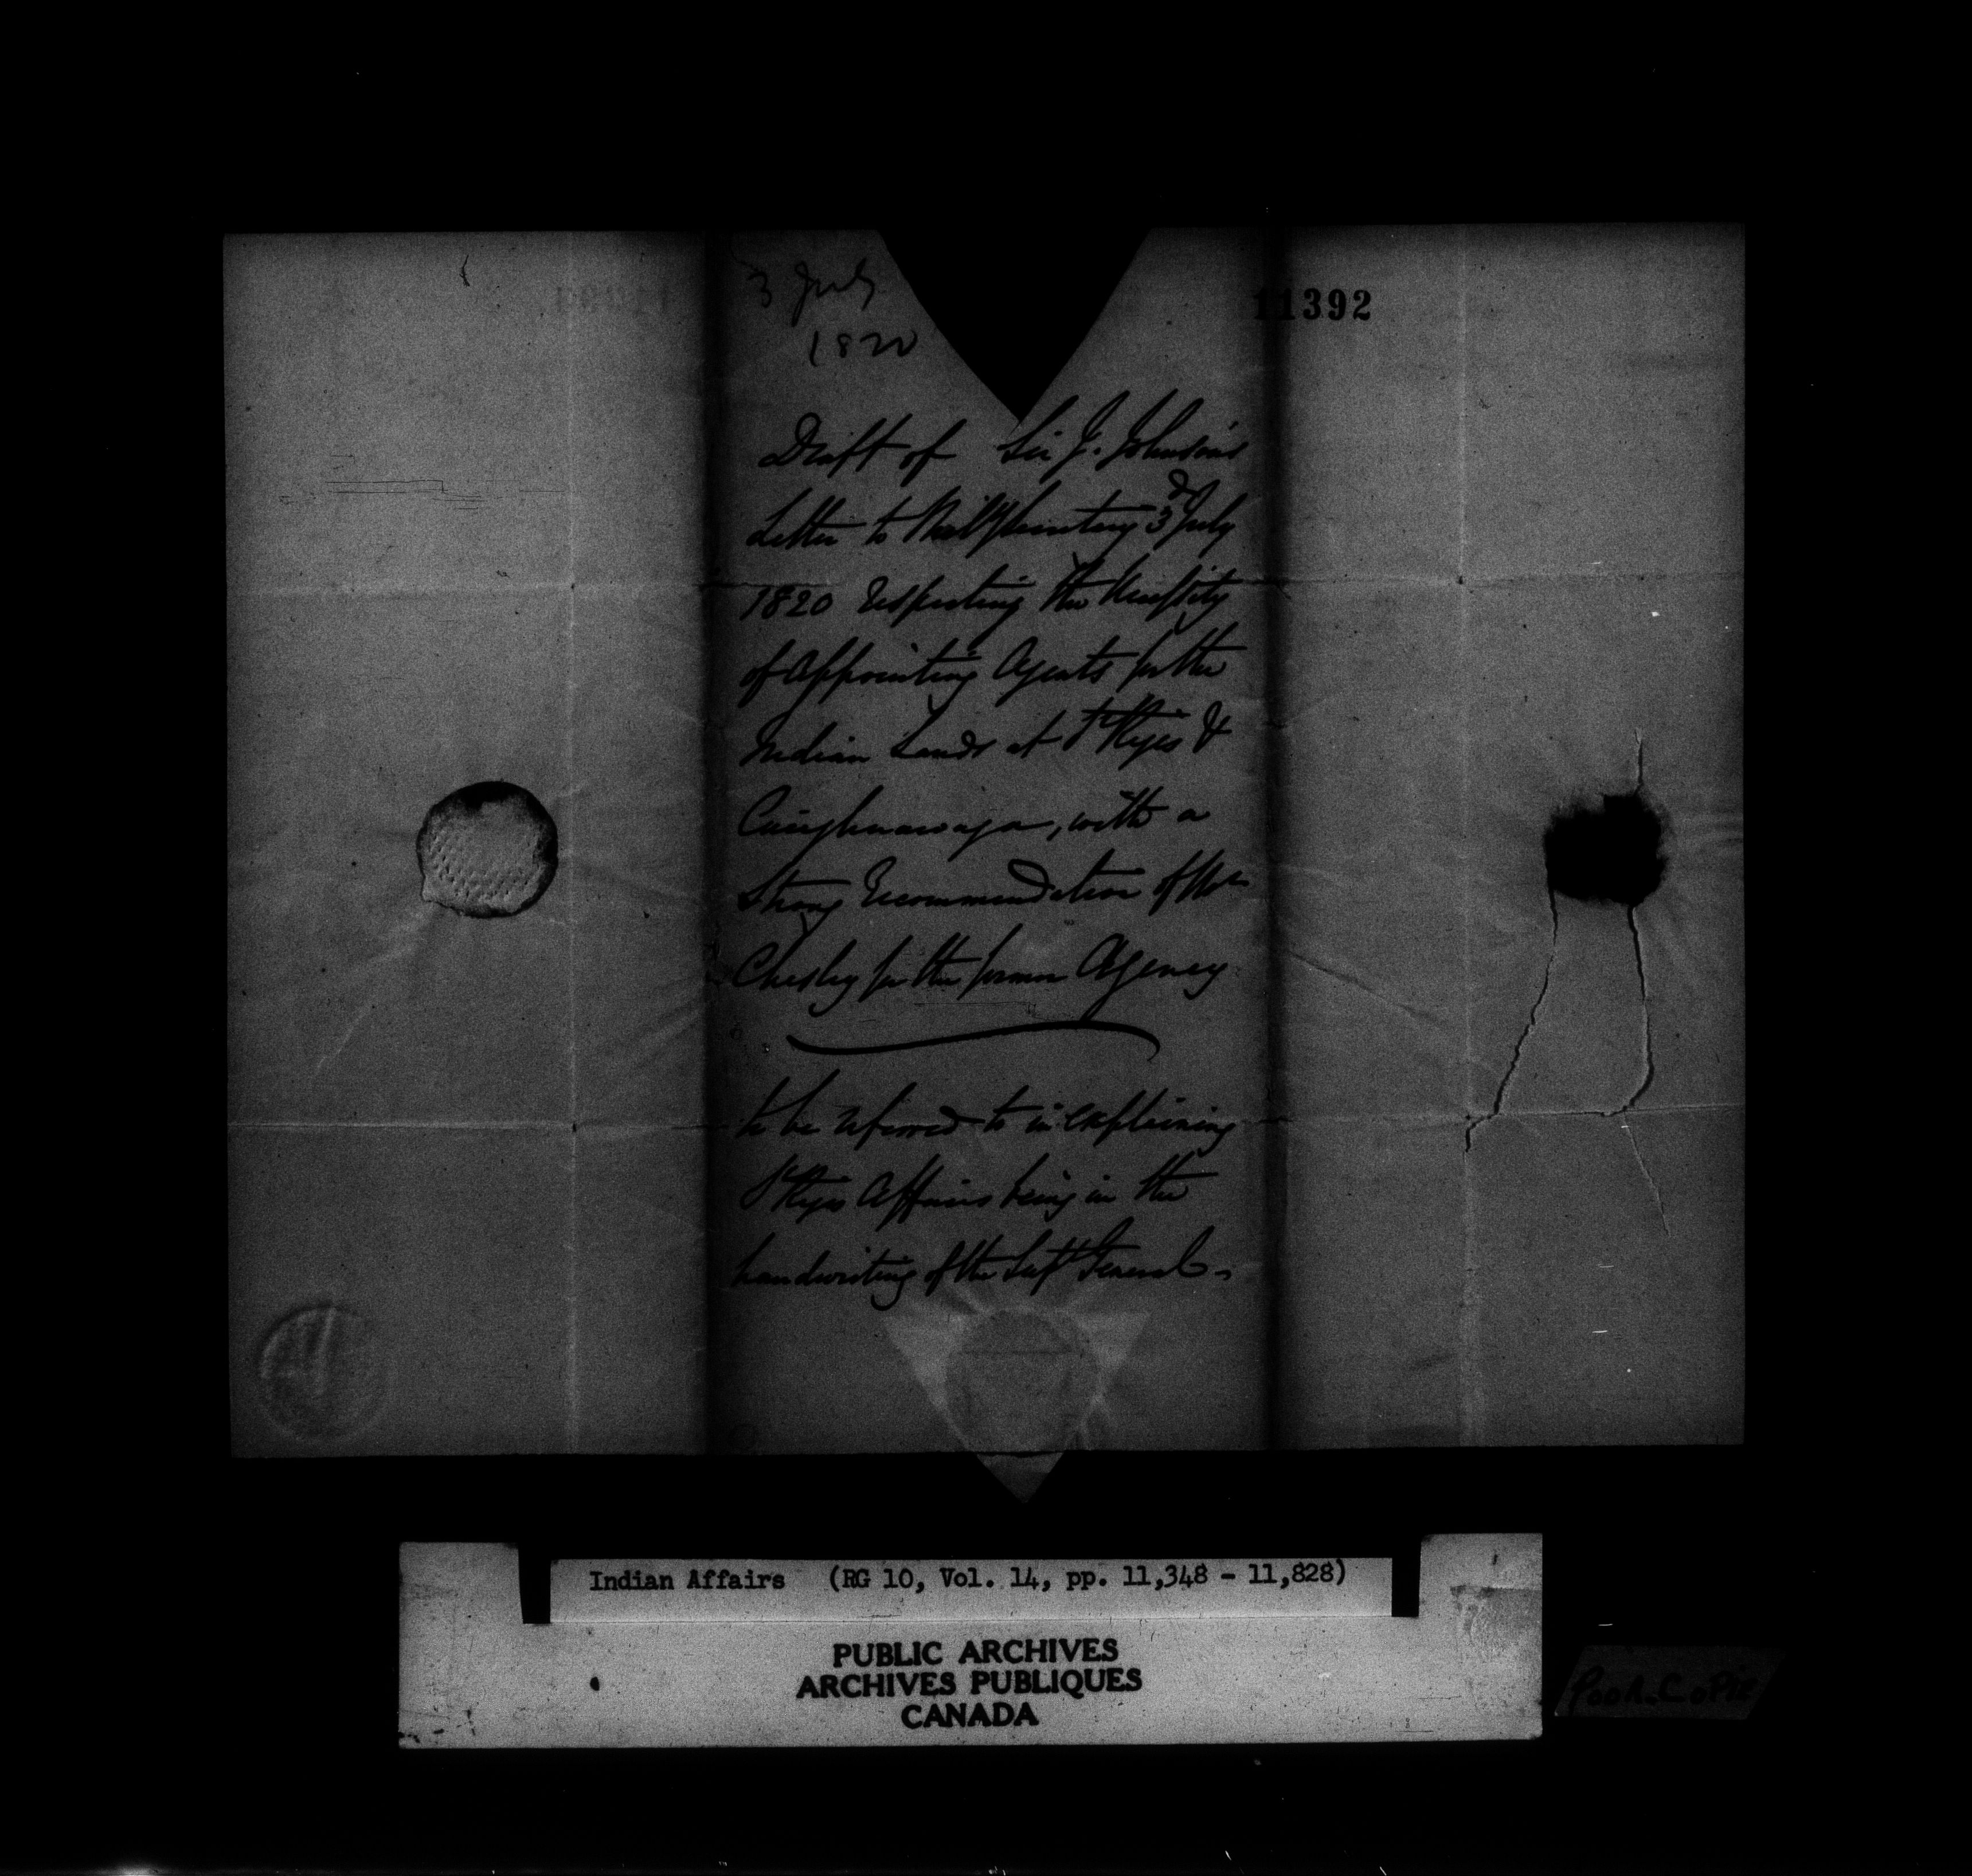 3 July
1820
11392
Draft of Sir J. Johnson's
Letter to 3d July
1820 respecting the Necessity
of Appointing Agents for the
Indian Lands at St Regis &
Caughnawaga, with a
Strong Recommendation of Mr
Chesley for the former Agency
to be referred to in explaining
St Regis Affairs being in the
handwriting of the Supt General -
Indian Affairs (RG 10, Vol. 14, pp. 11,348 - 11,828)
PUBLIC ARCHIVES
ARCHIVES PUBLIQUES
CANADA
Poor. CoPie